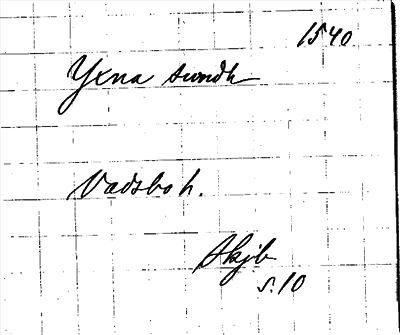 1540
Yxna sundh
Vadsbo h.
Skjb
s. 10